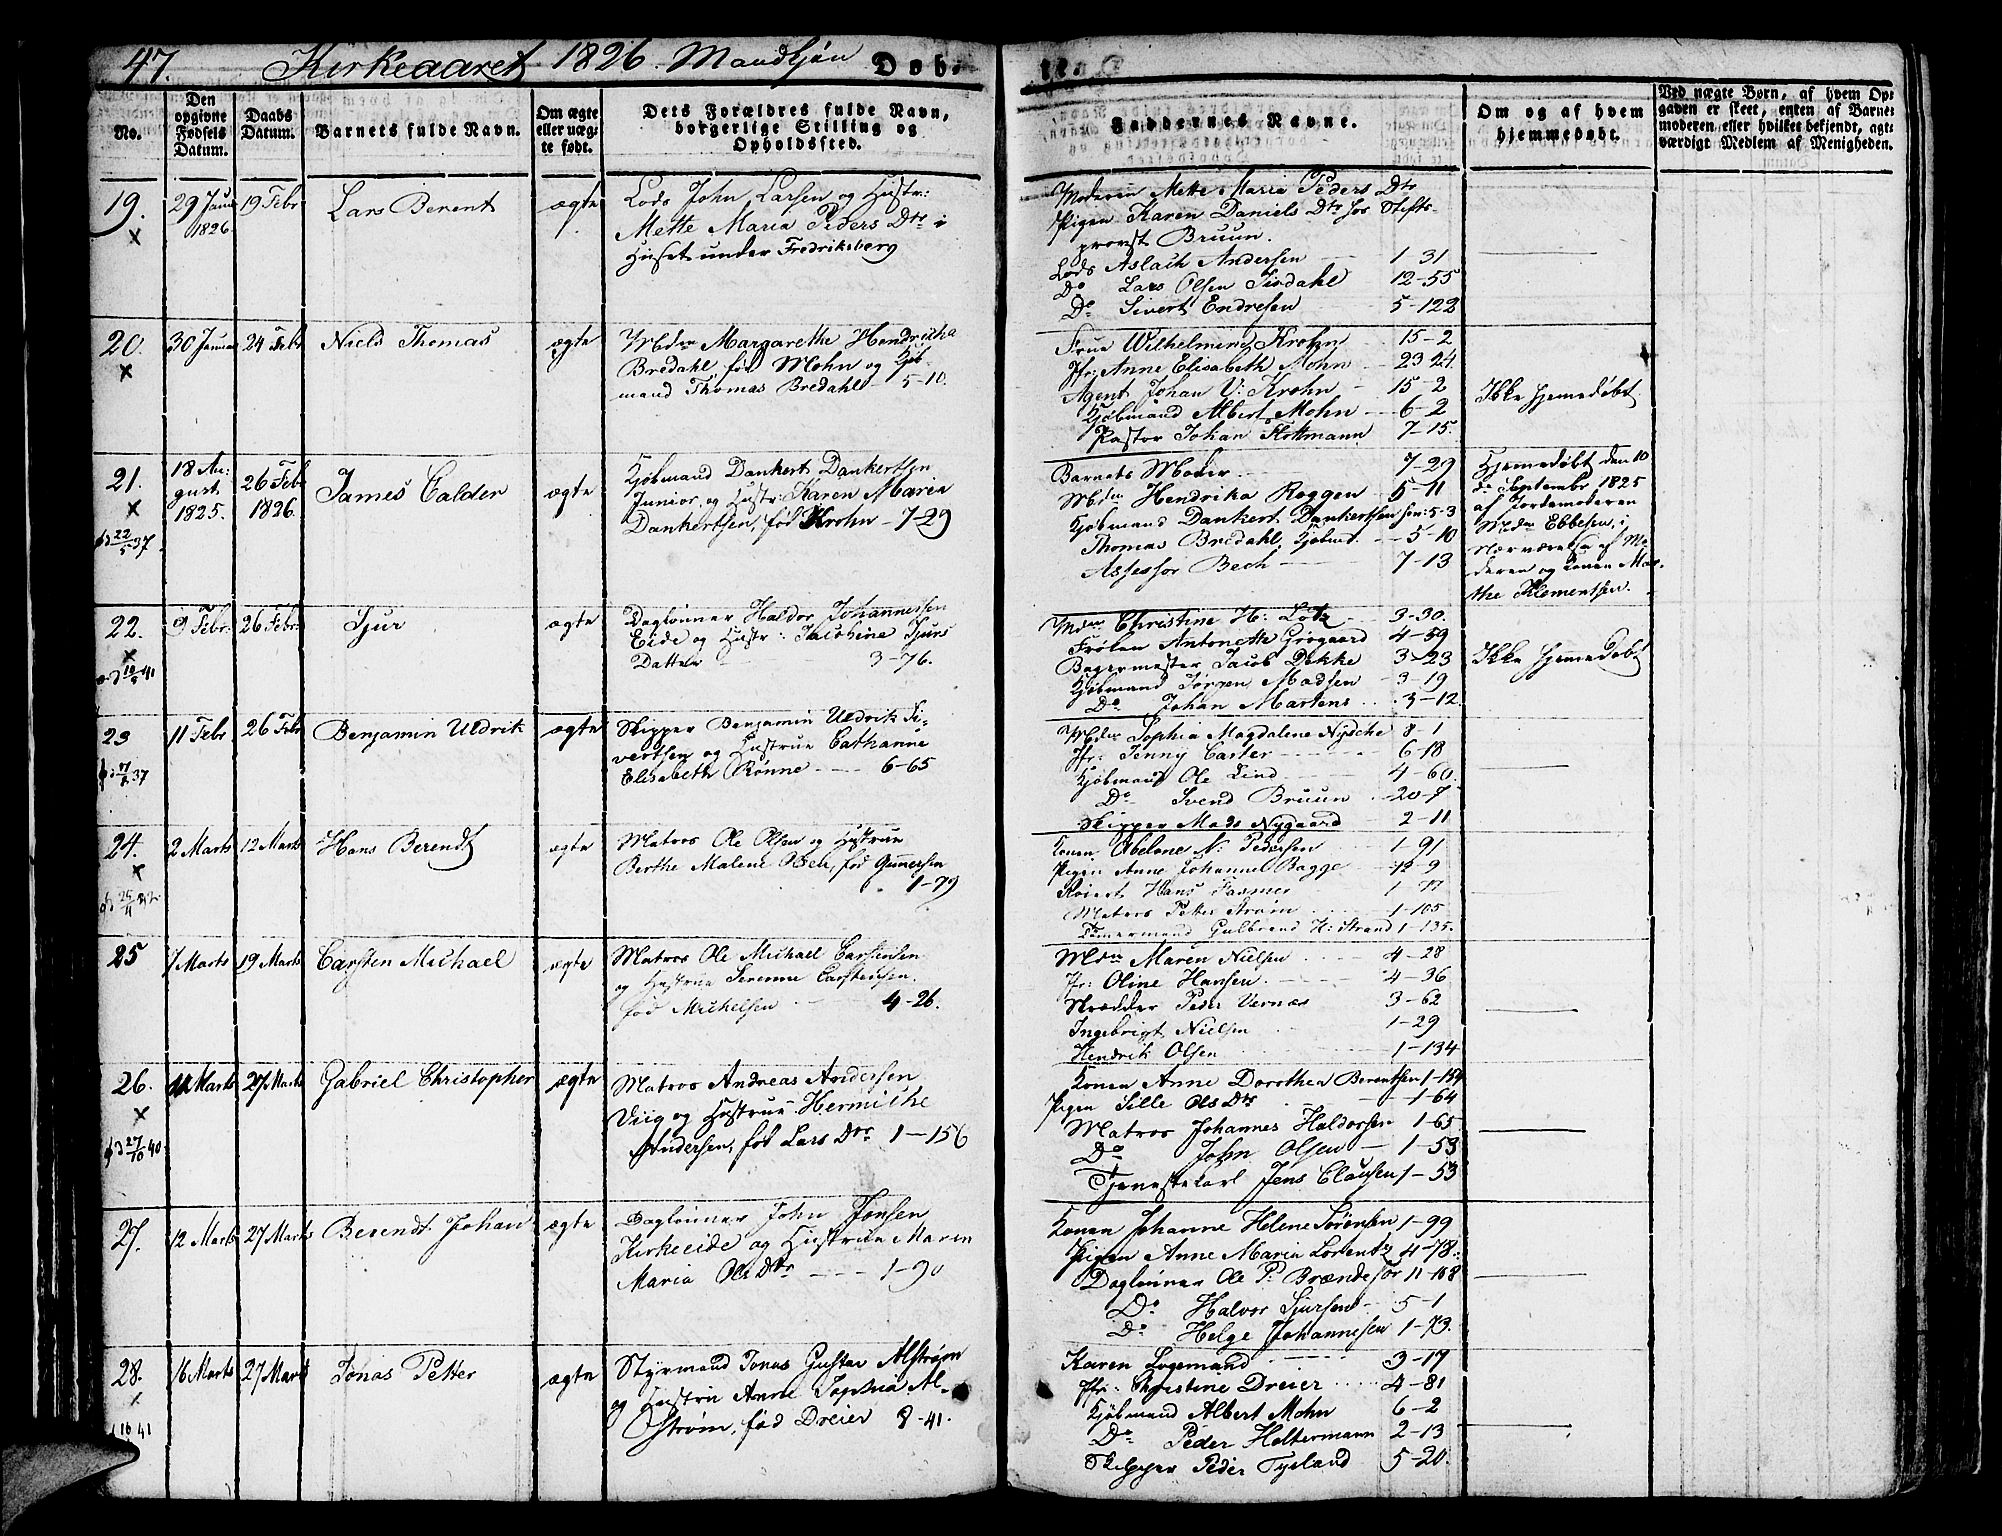 47. Kirkeaaret 1826. Mandkjøn Døb-
te.
No.
Den opgivne Fødsels Datum.
Daabs Datum.
Barnets fulde Navn.
Om ægte eller uægte født.
Dets Forældres fulde Navn, borgerlige Stilling og Opholdssted.
Faddernes Navne.
Om og af hvem hjemmedøbt.
Ved uægte Børn, af hvem Opgaven er skeet, enten af Barnemoderen eller hvilket bekjendt, agtværdigt Medlem af Menigheden.
19. 29 Janr 1826. 19 Febr Lars Berent ægte
Lods John Larsen og Hustr:
Mette Maria Peders Dtr i
Huset under Fredriksberg
Moderen Mette Maria Peders Dtr
Pigen Karen Daniels Dtr hos Stifts-
provst Bruun.
Lods Aslach Andersen 1 31
Do Lars Olsen 12-55
Do Sivert Endresen 5-122
20. 30 Januar 24 Febr Niels Thomas ægte
Mdm Margarethe Hendricha
Bredahl, før Mohn og Kjøb
mand Thomas Bredahl 5-10.
Frue Wilhelmine Krohn 15-2
Jfr: Anne Elisabeth Mohn 23 24
Agent Johan V: Krohn 15-2
Kjøbmand Albert Mohn 6-2
Pastor Johan Flottmann 7-15.
Ikke hjemedøbt.
21. 18 Au:
gust
1825. 26 Febr
1826. James Calder ægte
22/5 37
Kjøbmand Dankert Dankertsen
Junior og Hustr: Karen Maria
Dankertsen, fød Krohn - 7-29
Barnets Moder 7-29
Mdm Hendrika Roggen 5-11
Kjøbmand Dankert Dankertsen sen: 5-3
Thomas Bredahl, Kjøbmd. 5-10
Assessor Bech 7-13
Hjemedøbt den 10
de September 1825
af Jordemoderen
Mdm Ebbesen, i
Nærværelse af Mo-
deren og Konen Mar-
the Klementsen.
22. 9 Febr: 26 Febr: Sjur ægte
Daglønner Haldor Johannessen
Eide og Hustr: Jacobine Sjurs
Datter 3-76.
Mdm Christine H: Lotz 3-30.
Frøken Antonette Grøgaard 4-59
Bagermester Jacob Dekke 3-23
Kjøbmand Jørgen Madsen 3-19
Do Johan Martens 3-12.
Ikke hjemedøbt
23 11 Febr 26 Febr Benjamin Uldrik ægte
Skipper Benjamin Uldrik Si-
vertsen og Hustrue Cathrine
Elisabeth Rønne 6-65
Mdm Sophia Magdalene Nysche 8-1
Jfr: Jenny Carter 6-18
Kjøbmand Ole Lind 4-60.
Do Svend Bruun 20-7
Skipper Mads Nygaard 2-11
24. 2 Marts 12 Marts Hans Berendt ægte
Matros Ole Olsen og Hustrue
Berthe Malene Olsen, fød Gunnersen
1-79
Konen Abelone N: Pedersen 1-91
Pigen Anne Johannel Bagge 12-9
Hans Fasmer 1-77
Matros Petter Strøm 1-105
Tømermand Gulbrand H: Strand 1-135.
25 7 Marts 19 Marts Carsten Michael ægte
Matros Ole Michael Carstensen
og Hustrue Serenne Carstensen.
fød Michelsen 4-26.
Mdm Maren Nielsen 4-28
Jfr: Oline Hansen 4-36
Skrædder Peder Vernæs 3-62
Ingebrigt Nielsen 1-29
Hendrik Olsen 1-134
26. 11 Marts 27 Marts Gabriel Christopher ægte
27/10 40
Matros Andreas Andersen
Viig og Hustrue Hermiche
Andersen, fød Lars Dtr 1-156
Konen Anne Dorothea Berentsen 1-154
Pigen Sille Ols Dtr 1-64
Matros Johannes Haldorsen 1-65
Do John Olsen 1-53
Tjenestekarl Jens Clausen 1-53
27. 12 Marts 27 Marts Berendt Johan ægte
Daglønner John Jonsen
Kirkeeide og Hustrue Maren
Maria Ols Dtr 1-90
Konen Johanne Helene Sørensen 1-99
Pigen Anne Maria Lorentz 4-78.
Daglønner Ole P: Brændesør 11-108
Do Halvor Sjursen 5-1
Do Helge Johannesen 1-73.
28. 16 Marts 27 Marts Jonas Petter ægte
Styrmand Jonas Gustav Alstrøm
og Hustru Anne Sophia Al-
strøm, fød Dreier 8-41.
Karen Logemand 3-17
Jfr: Christine Dreier 4-81
Kjøbmand Albert Mohn 6-2
Do Peder Heltermann 2-13
Skipper Peder Tysland 5-20.